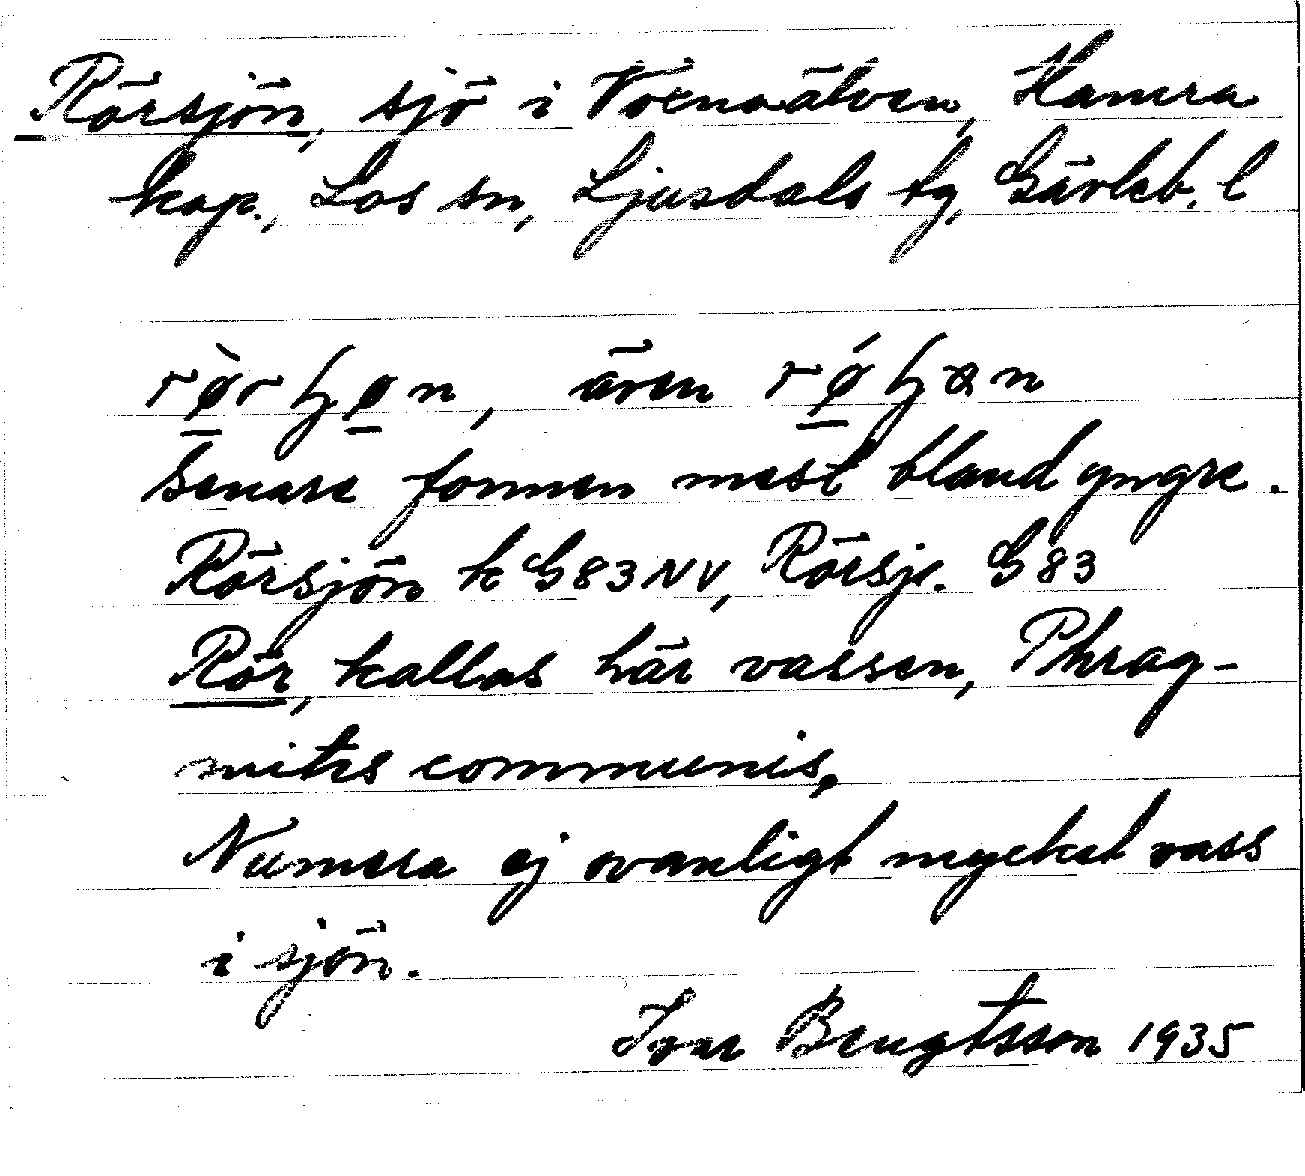 Rörsjön, sjö i Voxnaälven, Hamra
kap., Los sn, Ljusdals tg, Gävleb. l
även
Senare formen mest bland yngre.
Rörsjön k G83NV, Rörsjö. G83
Rör, kallas här vassen, Phrag-
mites communis,
Numera ej ovanligt mycket vass
i sjön.
Ivar Bengtsson 1935